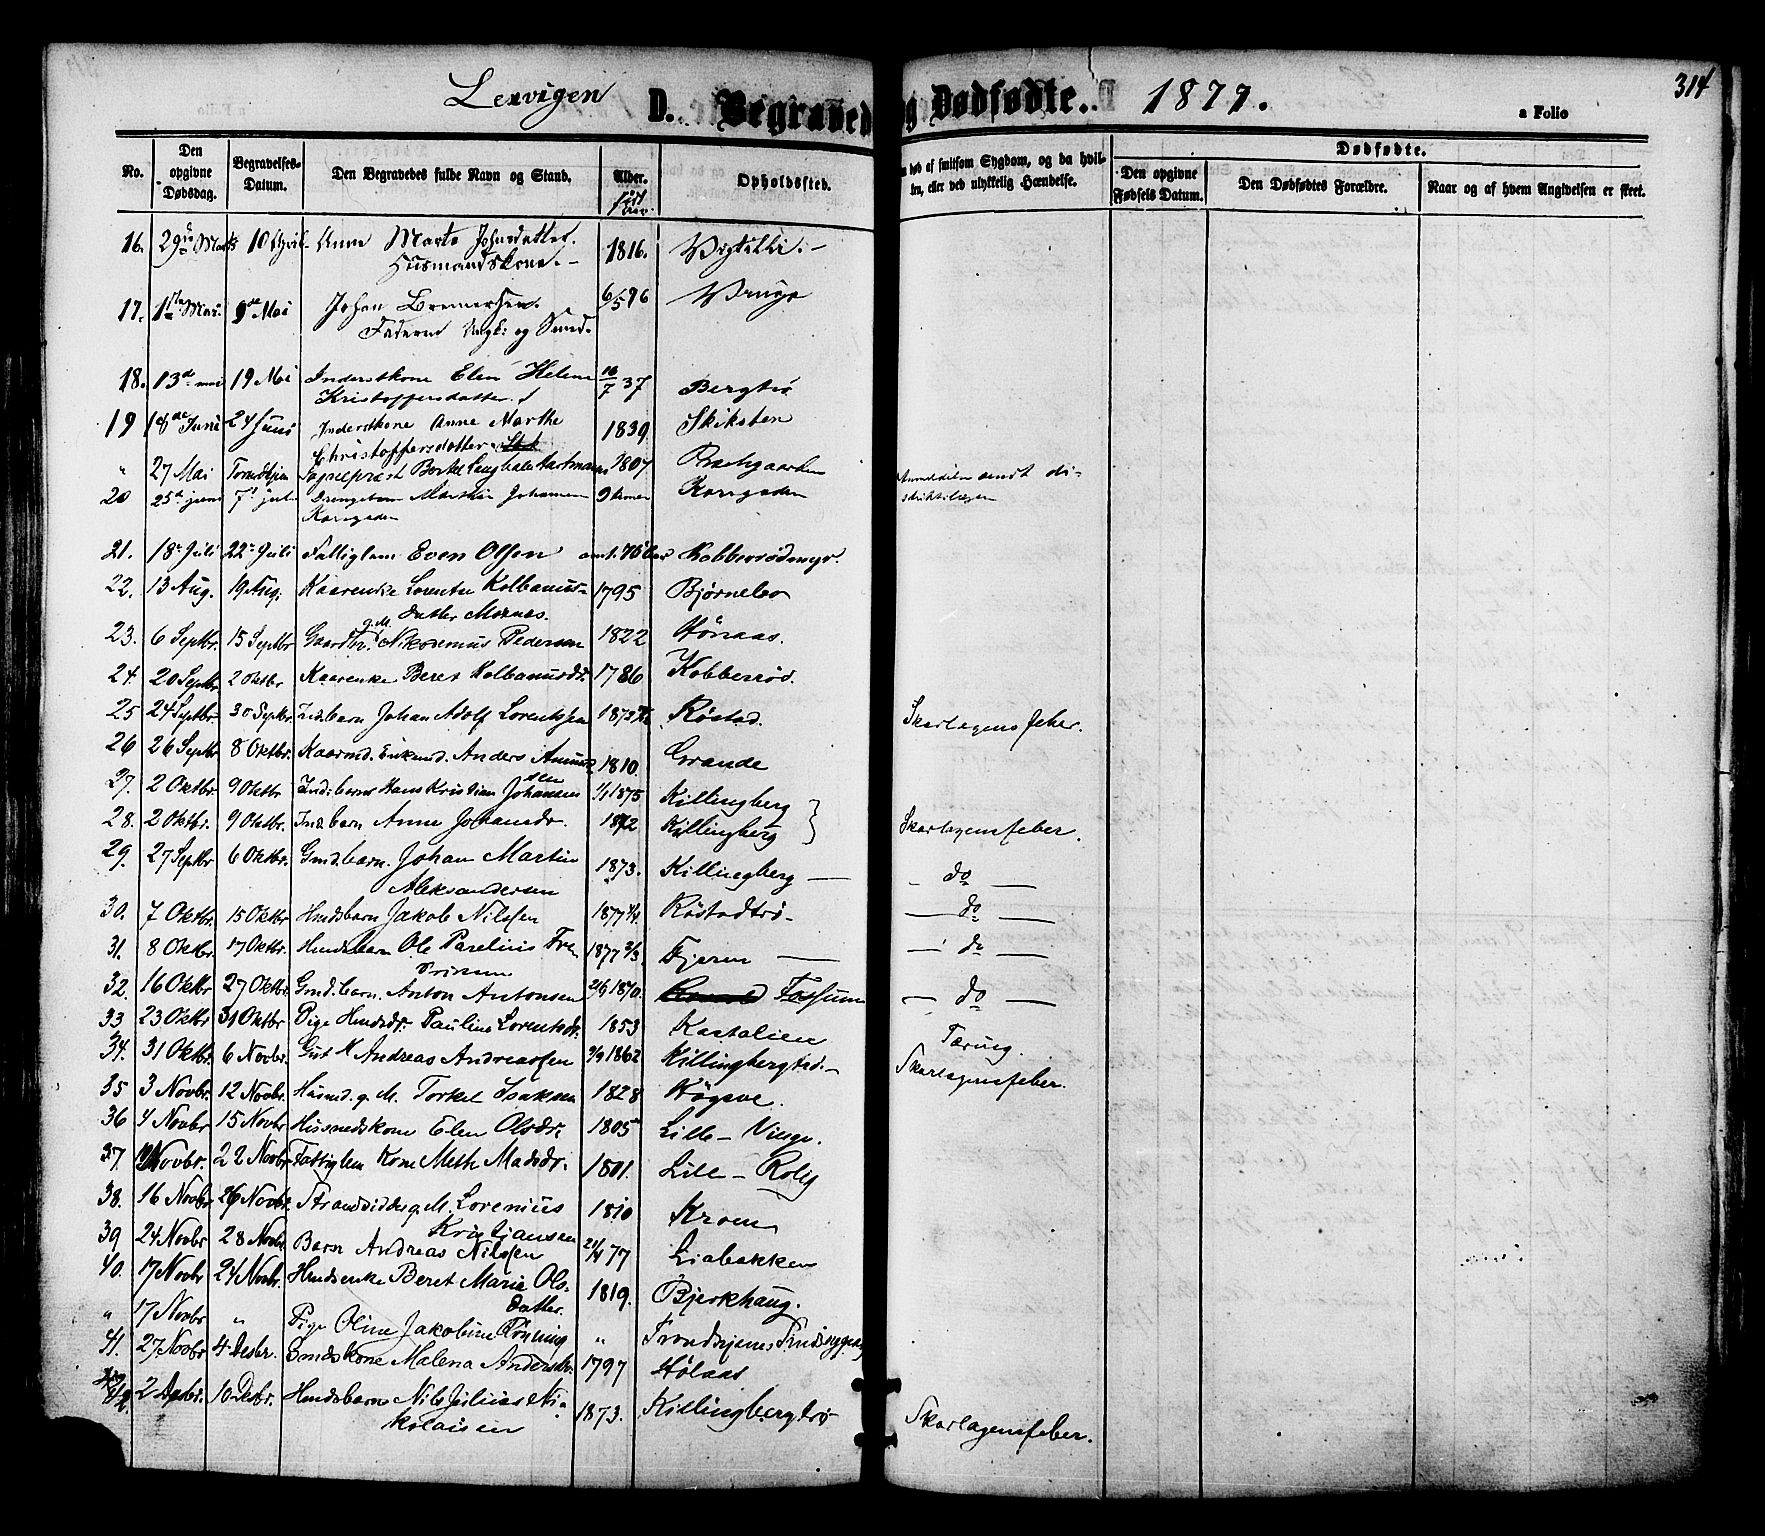 Lexvigen D. Begravede og Dødfødte. 1877. 314
a Folio
No. Den opgivne Dødsdag. Begravelses-Datum. Den Begravedes fulde Navn og Stand. Alder. født Aar. Opholdssted. død af smitsom Sygdom, og da hvilken, eller ved ulykkelig Hændelse. Dødfødte.
Den opgivne Fødsels Datum. Den Dødfødtes Forældre. Naar og af hvem Angivelsen er skeet.
16. 29de Marts 10 April Anne Marta Johnsdatter. 1816.
Husmandskone.
17. 1ste Mai. 9de Mai Johan 6/5 76
Faderen Ungk: og
18. 13de mai 19 Mai Inderstkone Elen Helene 16/7 37 Bergtrø
Kristoffersdatter
19 18de Juni 24 Juni Inderstkone Anne Marthe 1839 Skiksten
Christoffersdatter
" 27 Mai Sognepræst 1807 Præstgaarden Anmeldelse sendt di-
20 25de juni 7de juli Drengebarn Johansen striktslægen
21. 18de Juli 22de Juli Fattiglem Even Olsen omt. 75 Aar Kobberrødmyr.
22. 13 Aug. 19 Aug. Kaarenke Lorentse Kolbanus- 1795 Bjørnebo
datter Moenas.
23. 6 Septbr. 15 Septbr Gaardbr. g.M. Nikodemus Pedersen 1822 Hønaas.
24. 20 Septbr 2 Oktbr Kaarenke Beret Kolbanusdt. 1786 Kobberrød.
25 24 Septbr. 30 Septbr. Ind.barn Johan Adolf Lorentsen Røstad. Skarlagensfeber.
26 26 Septbr 8 Oktbr. Kaarmd. Enkemd. Anders 1810. Grande
27. 2 Oktbr. 9 Oktbr Indbarn Hans Kristian Johansen 1/1 1875 Killingberg
28. 2 Oktbr. 9 Oktbr. Indbarn Anne Johansdr. 1872 Killingberg Skarlagensfeber.
29. 27 Septbr 6 Oktbr. Gmd.barn. Johan Martin 1873. Killingberg — — do —
Aleksandersen
30. 7 Oktbr. 15 Oktbr Hmdsbarn Jakob Nilssen 1877 Røstadtrø. — do —
31. 8 Oktbr. 17 Oktbr. Hmdsbarn Ole Parelius Fre- 1877 2/3. Fjeren — — do —
driksen
32. 16 Oktbr 27 Oktbr. Gmd.barn. Anton Antonsen 1870. Fossum — do —
33 23 Oktbr 31 Oktbr Pige Hmdsdr. Pauline Lorentsdr. 1853 Kastalien Tæring.
34. 31 Oktbr. 6 Novbr. Gut Andreas Andreassen 1862 Killingbergtrø. Skarlagensfeber.
35 3 Novbr. 12 Novbr. Husmd. g. M. Torkel Isaksen 1828 Høgsve.
36 4 Novbr 15 Novbr Husmdskone Elen Olsdr. 1805 Lille-Vinge.
37. Novbr. 22 Novbr Fattiglem Kone Meth Madsdr. 1801. Lille-Rolig
38. 16 Novbr 26 Novbr. Strandsidder g. M. Lorenius 1810 Kroen
Kristjansen
39 24 Novbr 28 Novbr Barn Andreas Nilssen 77 Liabakken
40. 17 Novbr 24 Novbr. Hmdsenke Beret Marie Ols- 1819. Bjerkhaug.
datter.
" 17 Novbr " Pige Oline Jakobine Rønning " Trondhjems Sindssygeasyl
41. 27 Novbr 4 Desbr. Gmdskone Malena Andersdr. 1797 Hølaas
42. 2 Desbr. 10 Desbr. Hmdsbarn Nils Julius Ni- 1873. Killingbergtrø Skarlagensfeber.
kolaisen